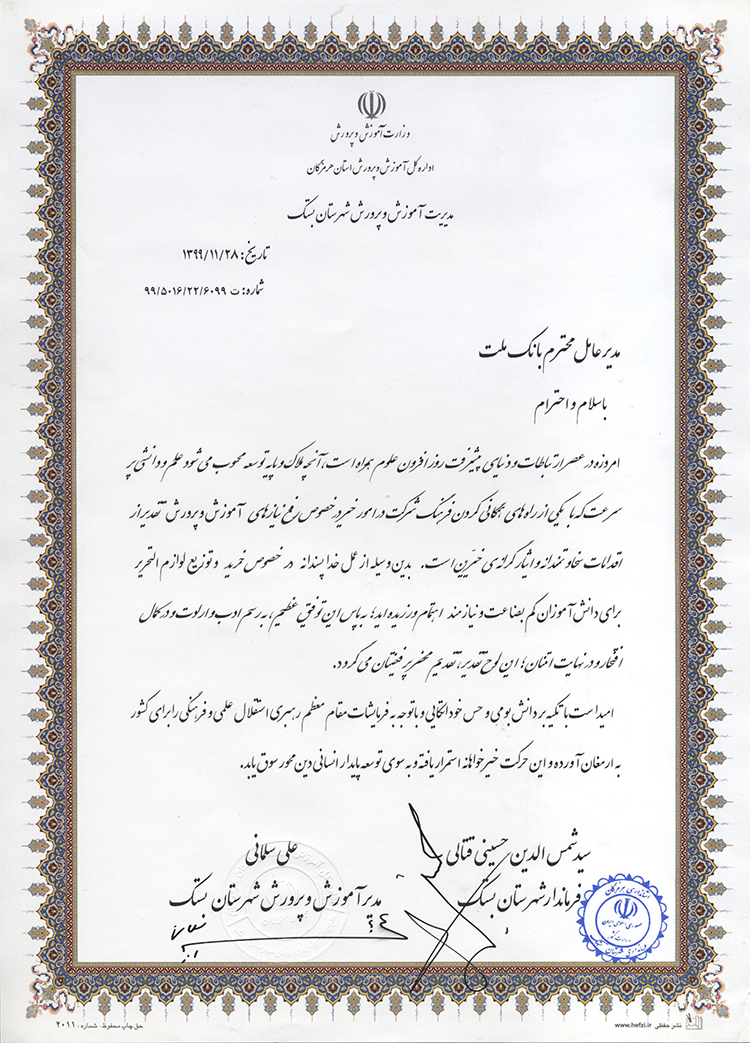 وزارت آموزش و پرورش
اداره کل آموزش و پرورش استان هرمزگان
مدیریت آموزش و پرورش شهرستان بستک
تاریخ: ۱۳۹۹/۱۱/۲۸
شماره: ت ۹۹/۵۰۱۶/۲۲/۶۰۹۹
مدیر عامل محترم بانک ملت
با سلام و احترام
امروزه در عصر ارتباطات و دنیای پیشرفت روز افزون علوم همراه است، آنچه ملاک و پایه توسعه محسوب می شود علم و دانشی پر
سرعت که با یکی از راه های همگانی کردن فرهنگ شرکت در امور خیر در خصوص رفع نیازهای آموزش و پرورش تقدیر از
اقدامات سخاوتمندانه و ایثارگرانه ی خیّرین است. بدین وسیله از عمل خداپسندانه در خصوص خرید و توزیع لوازم التحریر
برای دانش آموزان کم بضاعت و نیازمند اهتمام ورزیده اید؛ به پاس این توفیق عظیم، به رسم ادب و ارادت و در کمال
افتخار و در نهایت امتنان؛ این لوح تقدیر، تقدیم محضر پر فیضتان می گردد.
امید است با تکیه بر دانش بومی و حس خوداتکایی و با توجه به فرمایشات مقام معظم رهبری استقلال علمی و فرهنگی را برای کشور
به ارمغان آورده و این حرکت خیرخواهانه استمرار یافته و به سوی توسعه پایدار انسانی دین محور سوق یابد.
سید شمس الدین حسینی قتالی
علی سلمانی
فرماندار شهرستان بستک
مدیر آموزش و پرورش شهرستان بستک
استانداری هرمزگان
جمهوری اسلامی ایران
وزارت کشور
نشر حفظی www.hefzi.ir
حق چاپ محفوظ. شماره: ۲۰۱۱